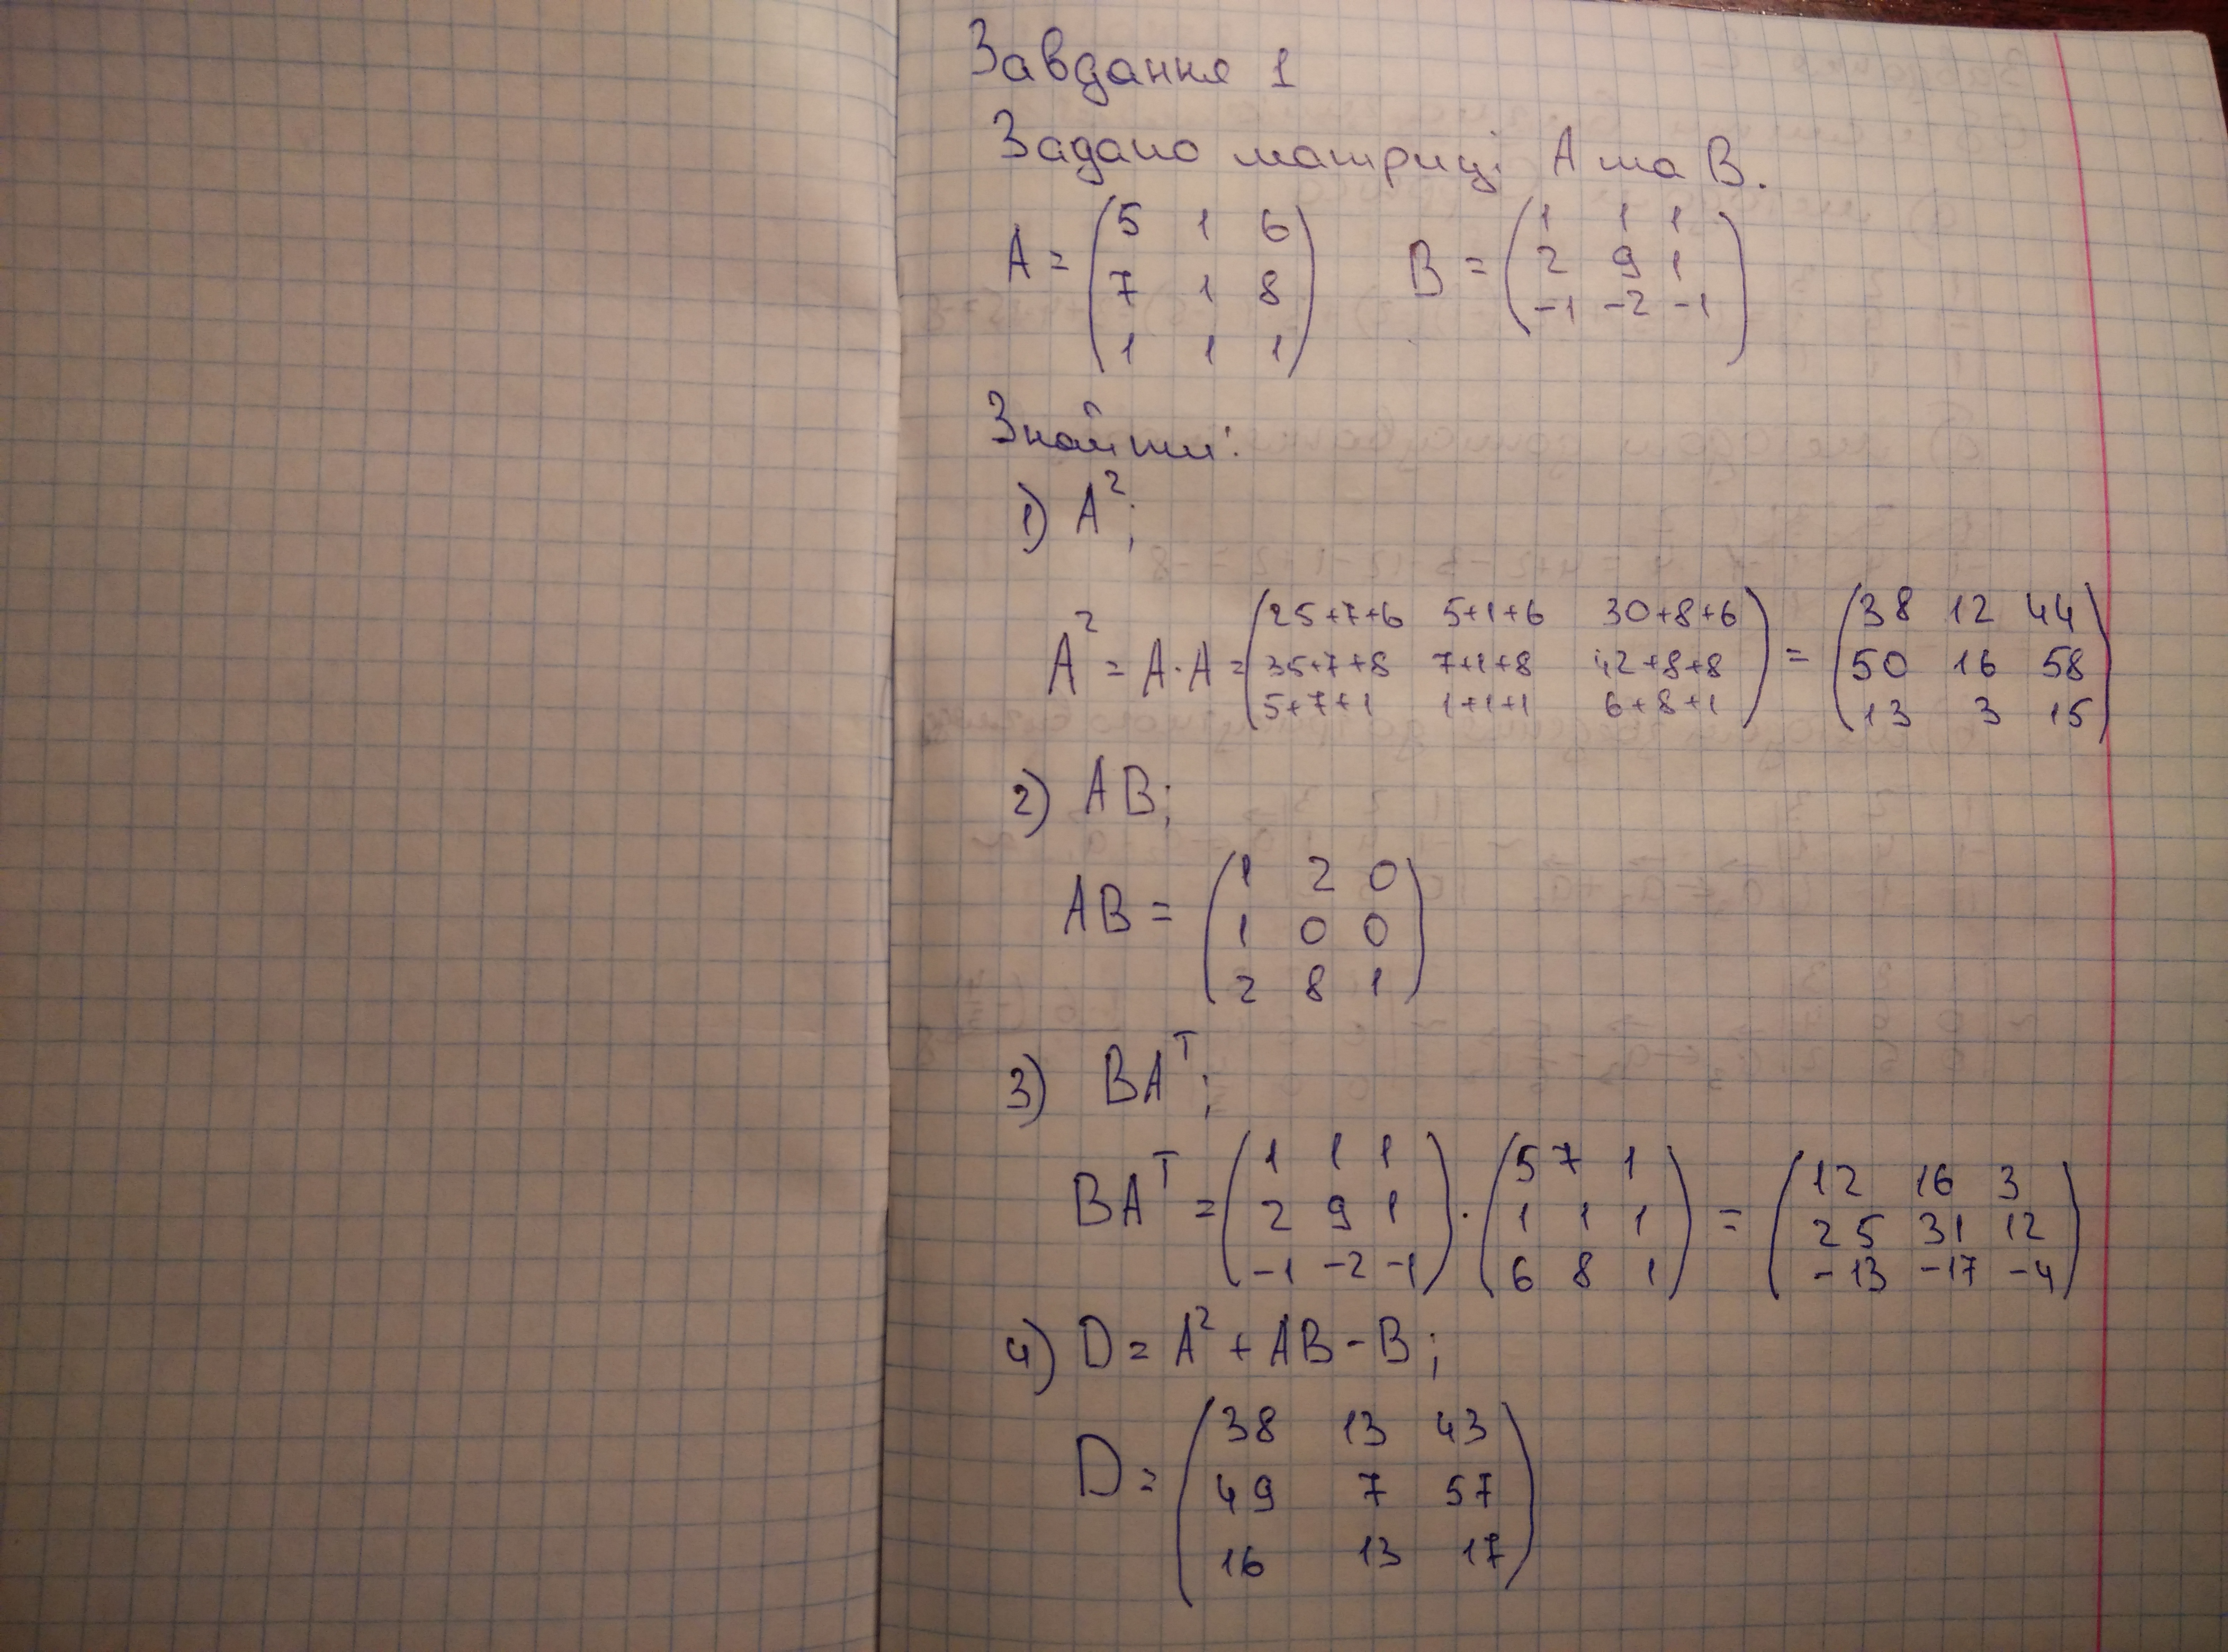 Завдання 1
Задано матриці A та B.
A = (5 1 6
7 1 8
1 1 1)
B = (1 1 1
2 9 1
-1 -2 -1)
Знайти:
1) A²;
A² = A·A = (25+7+6 5+1+6 30+8+6
35+7+8 7+1+8 42+8+8
5+7+1 1+1+1 6+8+1) = (38 12 44
50 16 58
13 3 15)
2) AB;
AB = (1 2 0
1 0 0
2 8 1)
3) BAᵀ;
BAᵀ = (1 1 1
2 9 1
-1 -2 -1) · (5 7 1
1 1 1
6 8 1) = (12 16 3
25 31 12
-13 -17 -4)
4) D = A² + AB - B;
D = (38 13 43
49 7 57
16 13 17)